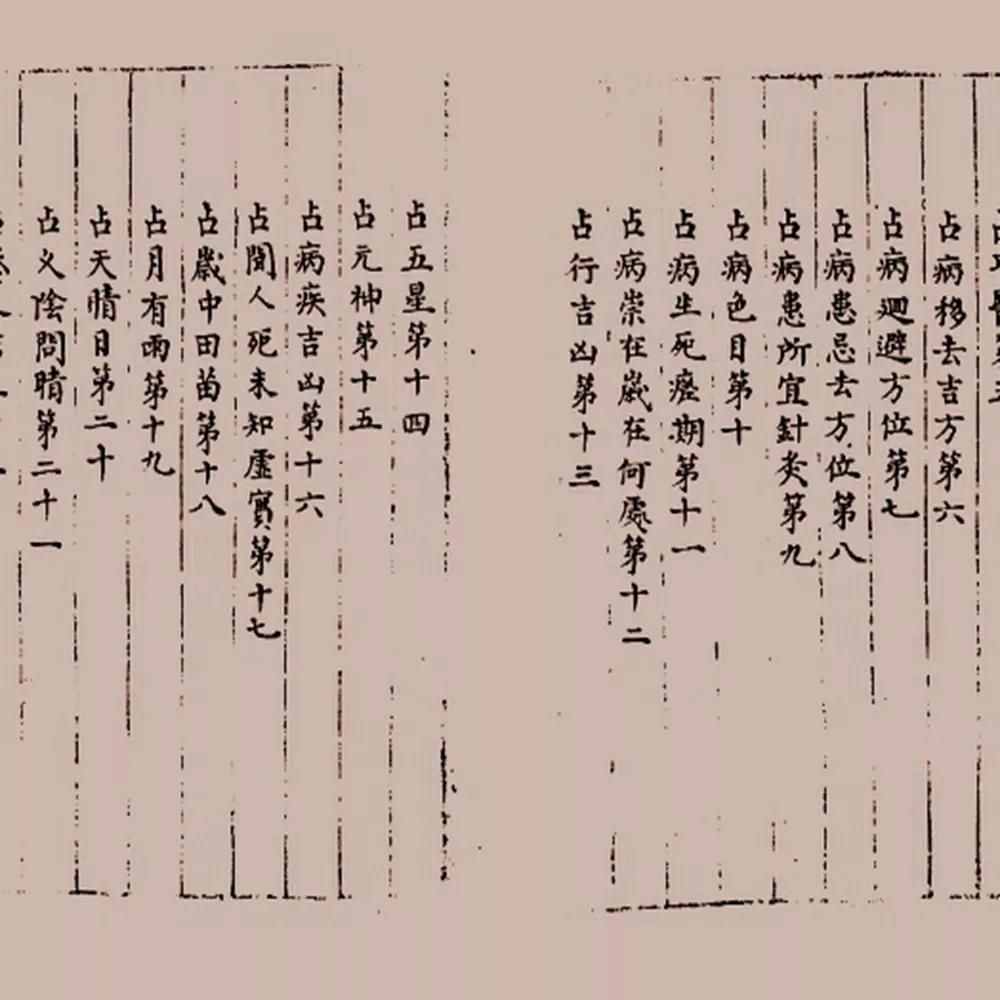 占病移去吉方第六
占病迴避方位第七
占病患忌去方位第八
占病患所宜針灸第九
占病色目第十
占病生死瘥期第十一
占病崇在嵗在何處第十二
占行吉凶第十三
占五星第十四
占元神第十五
占病疾吉凶第十六
占聞人死未知虛實第十七
占嵗中田苗第十八
占月有雨第十九
占天晴日第二十
占乂陰問晴第二十一